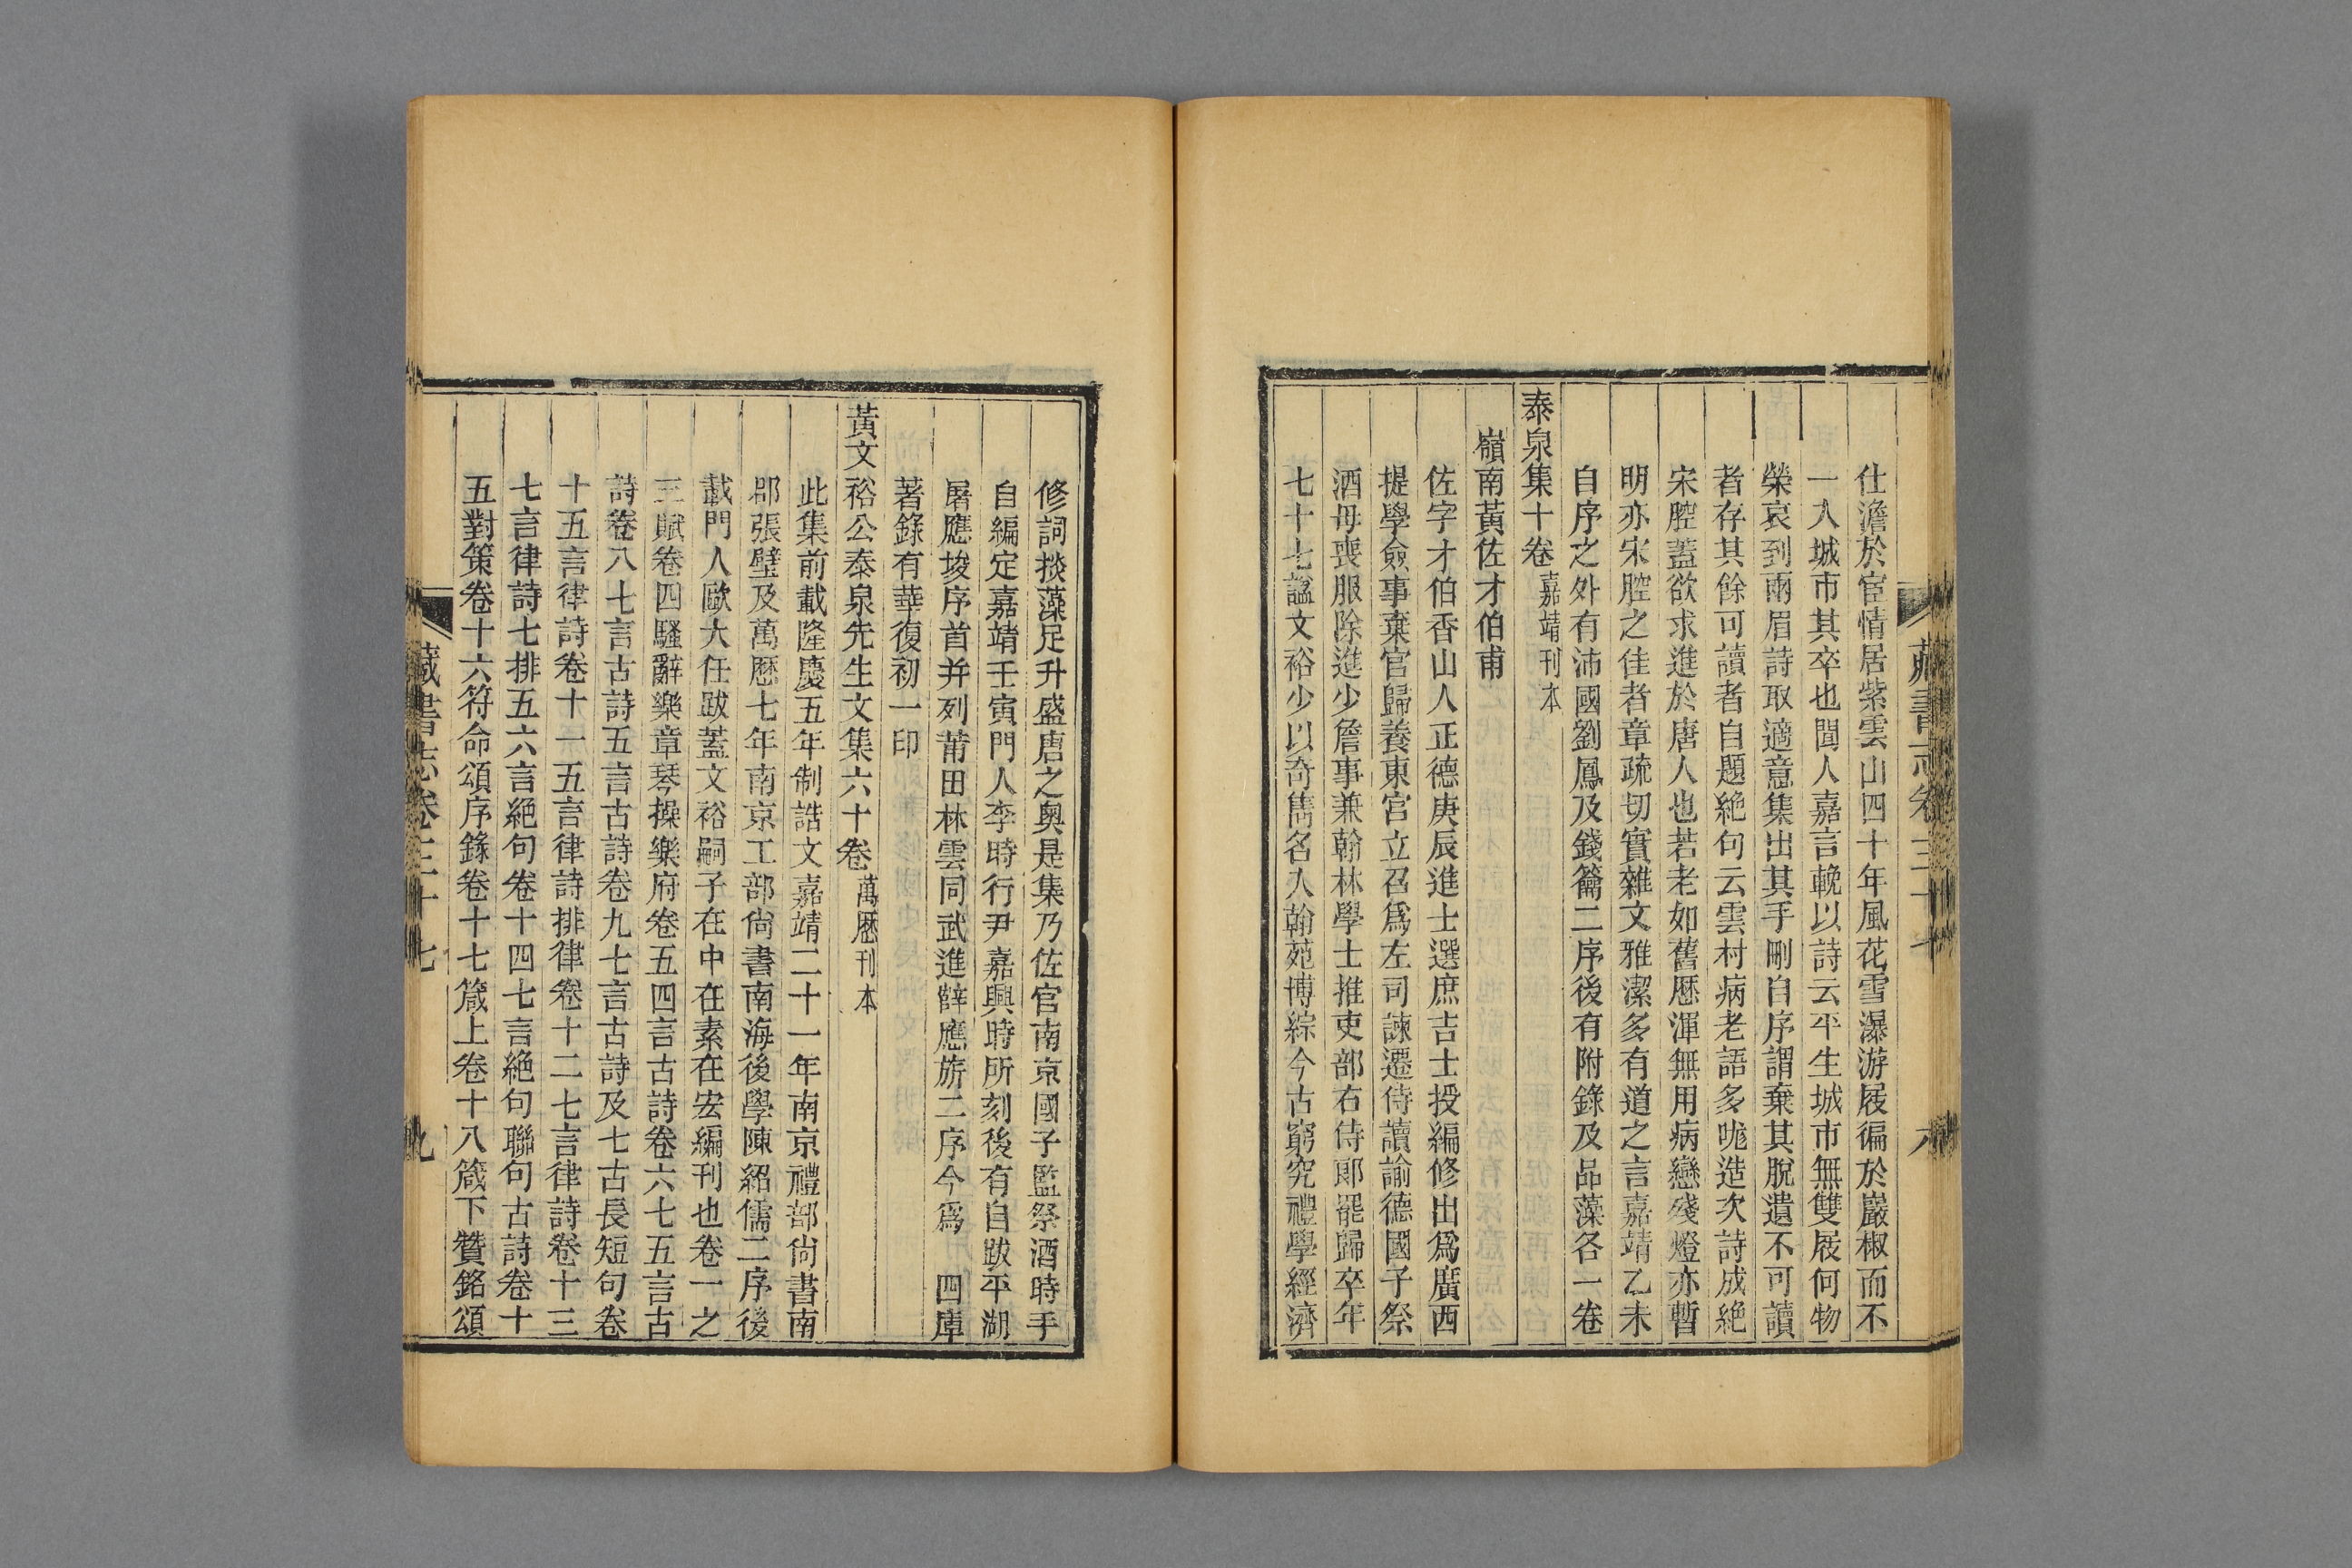 仕澹於宦情居紫雲山四十年風花雪瀑游屐徧於巖椒而不
一入城市其卒也聞人嘉言輓以詩云平生城市無雙屐何物
榮哀到兩眉詩取適意集出其手刪自序謂棄其脫遺不可讀
者存其餘可讀者自題絶句云雲村病老語多哤造次詩成絶
宋腔蓋欲求進於唐人也若老如舊曆渾無用病戀殘燈亦暫
明亦宋腔之佳者章疏切實雜文雅潔多有道之言嘉靖乙未
自序之外有沛國劉鳳及錢籥二序後有附錄及品藻各一卷
泰泉集十卷 嘉靖刊本
嶺南黃佐才伯甫
佐字才伯香山人正德庚辰進士選庶吉士授編修出爲廣西
提學僉事棄官歸養東宮立召爲左司諫遷侍讀諭德國子祭
酒母喪服除進少詹事兼翰林學士推吏部右侍郎罷歸卒年
七十七諡文裕少以奇雋名入翰苑博綜今古窮究禮學經濟
藏書志卷三十七
八
修詞掞藻足升盛唐之奧是集乃佐官南京國子監祭酒時手
自編定嘉靖壬寅門人李時行尹嘉興時所刻後有自跋平湖
屠應埈序首并列莆田林雲同武進薛應旂二序今爲 四庫
著錄有華復初一印
黃文裕公泰泉先生文集六十卷 萬曆刊本
此集前載隆慶五年制誥文嘉靖二十一年南京禮部尙書南
郡張璧及萬曆七年南京工部尙書南海後學陳紹儒二序後
載門人歐大任跋蓋文裕嗣子在中在素在宏編刊也卷一之
三賦卷四騷辭樂章琴操樂府卷五四言古詩卷六七五言古
詩卷八七言古詩五言古詩卷九七言古詩及七古長短句卷
十五言律詩卷十一五言律詩排律卷十二七言律詩卷十三
七言律詩七排五六言絶句卷十四七言絶句聯句古詩卷十
五對策卷十六符命頌序錄卷十七箴上卷十八箴下贊銘頌
藏書志卷三十七
九